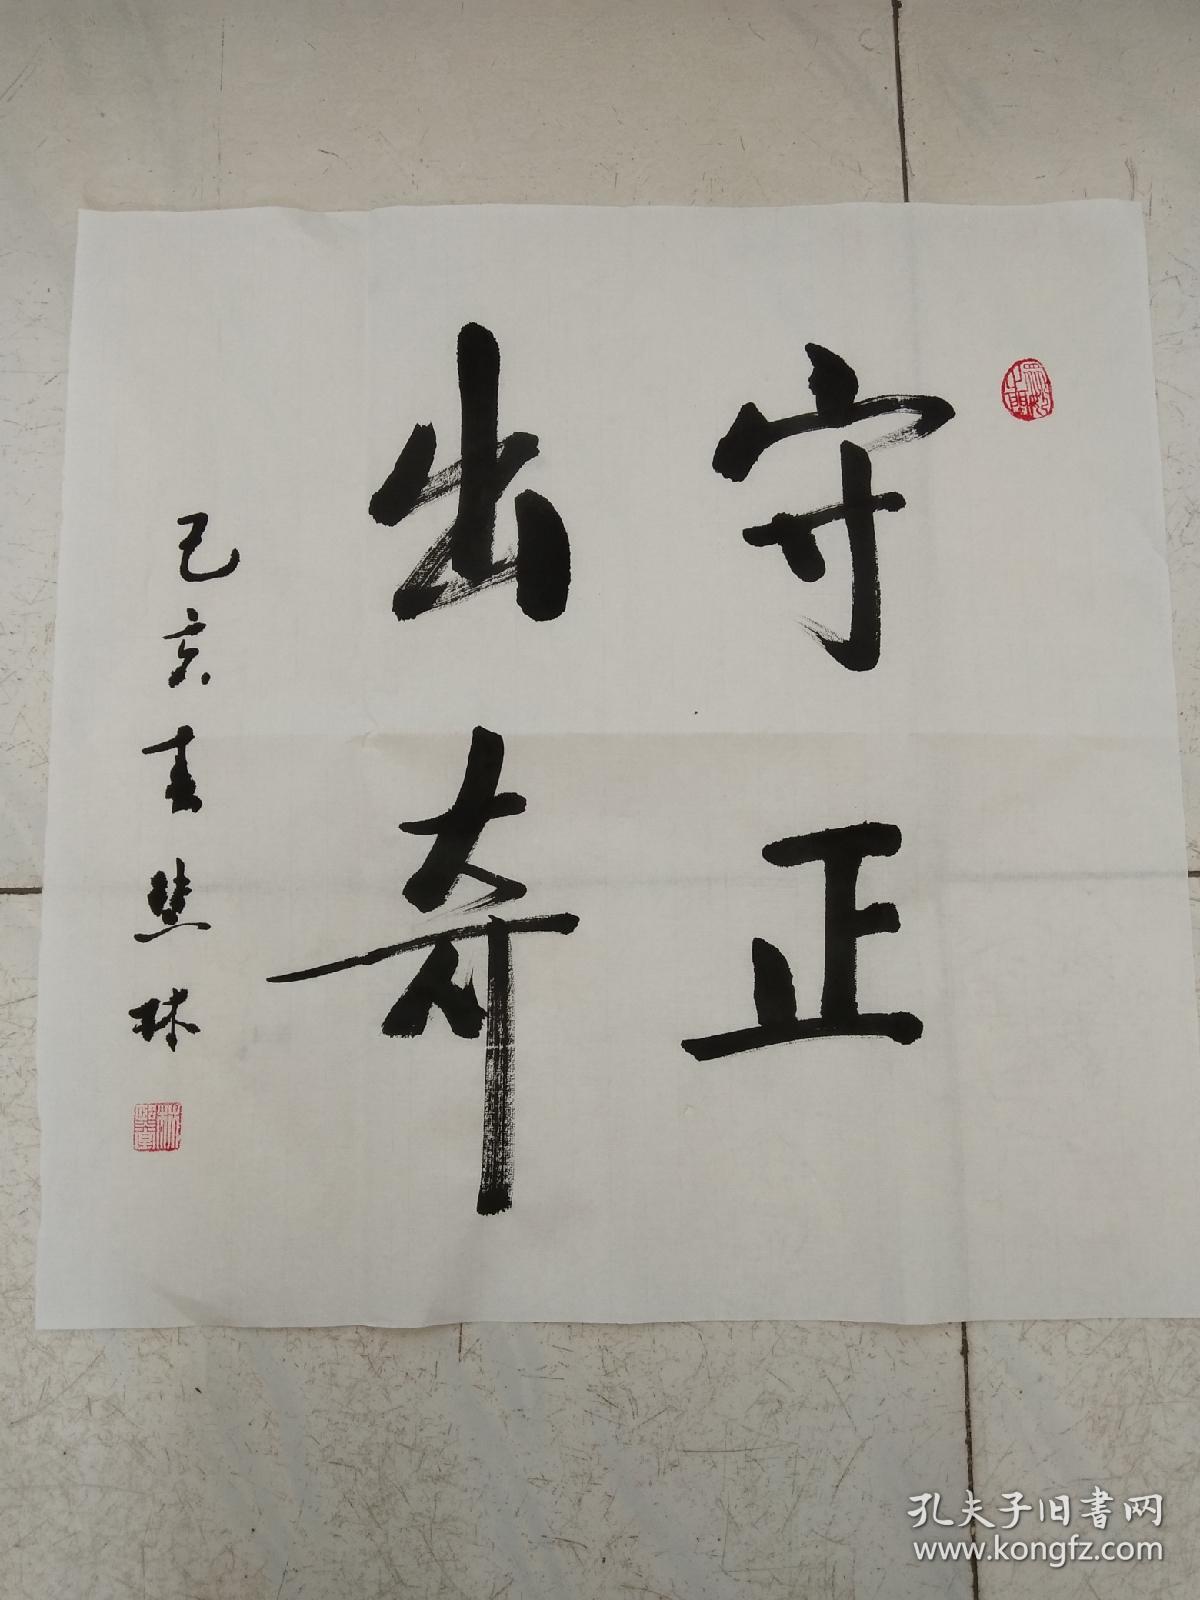 守正
出奇
己亥春慧林
众妙之门
孔夫子旧书网
www.kongfz.com